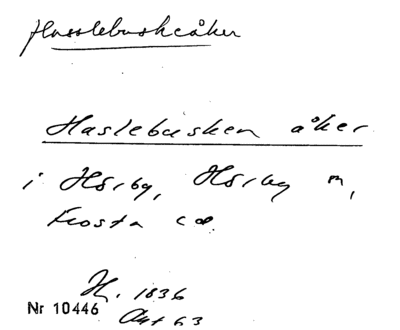 Hasslebuskeåker
Haslebusken åker
i Hörby, Hörby m,
Frosta
H. 1836
Nr 10446
Akt 63